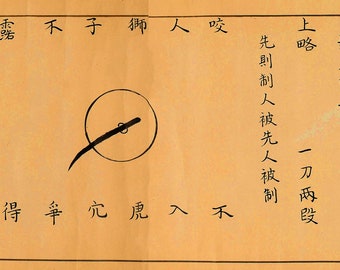 上略　一刀兩段
先則制人被先人被制
咬人獅子不露
不入虎穴爭得